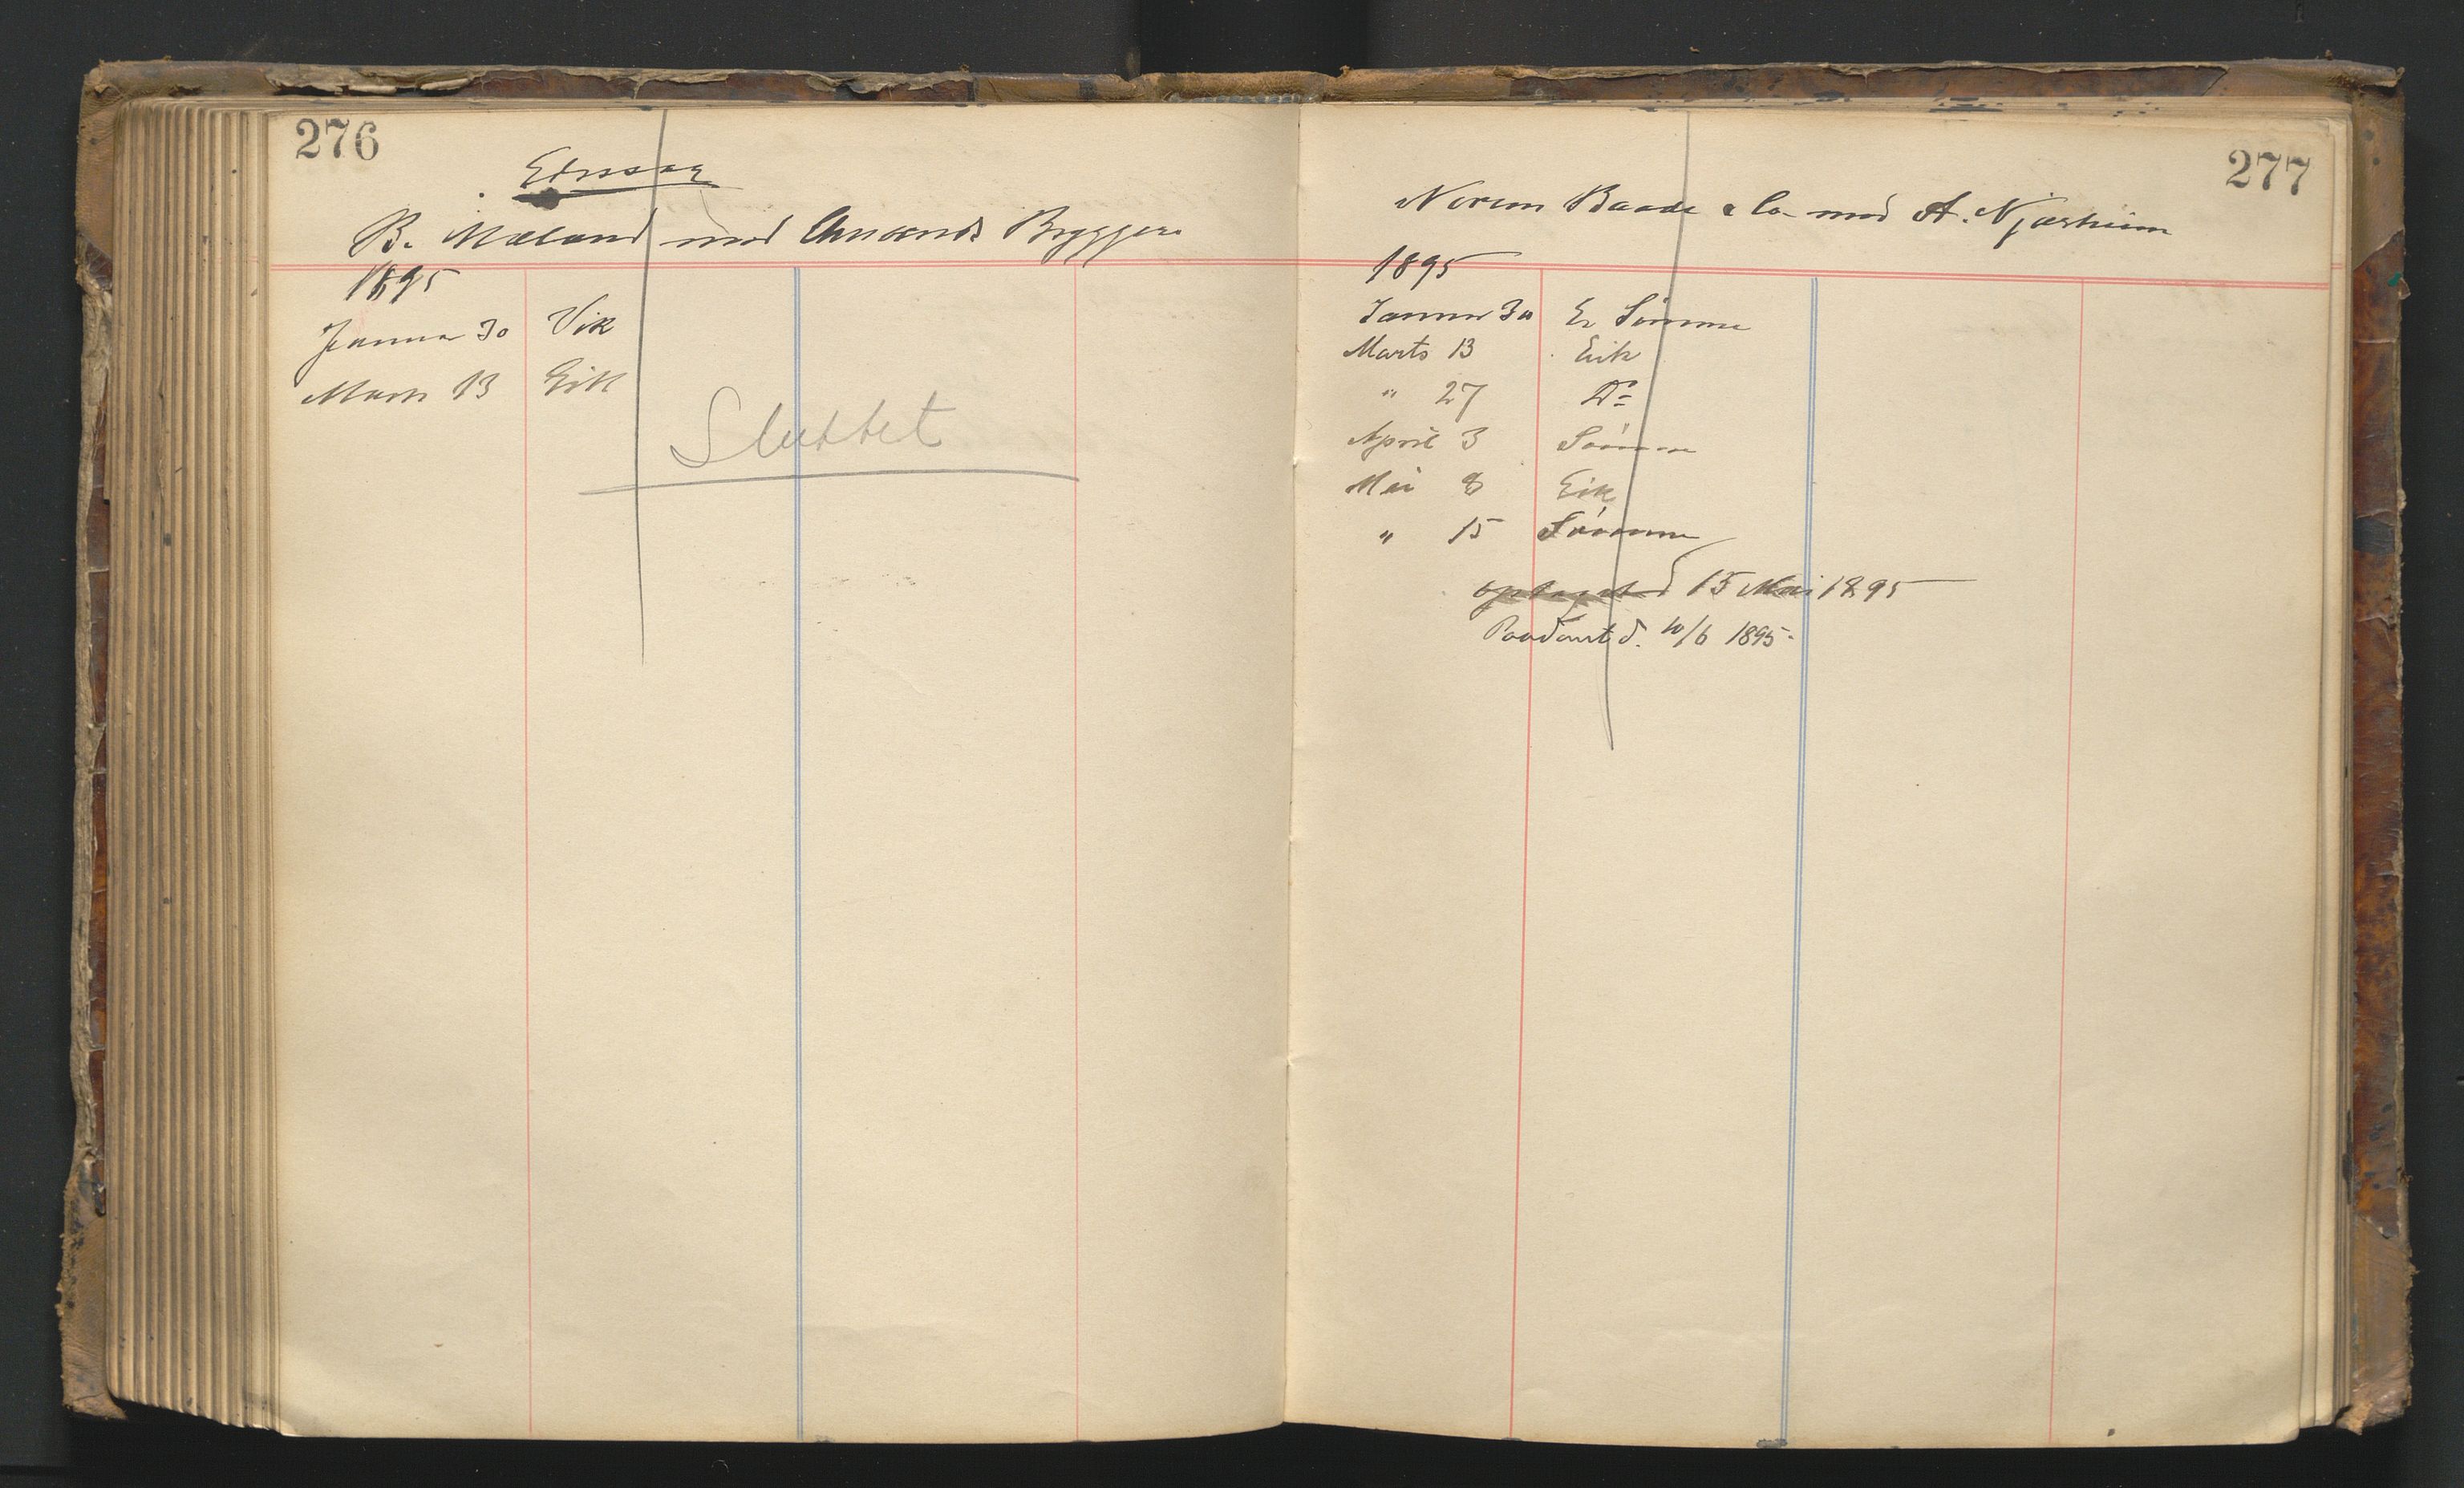 276
B. Mæland mod Aanunds Bryggeri
1895
Januar 30 Vik
Marts 13 Eik
Sluttet
277
Norem Baade & Co mod A. Njærheim
1895
Januar 30 Er Sømme
Marts 13 Eik
" 27 Do
April 3 Sømme
Mai 8 Eik
" 15 Sømme
optaget d 15 Mai 1895
Paadømt d. 10/6 1895.